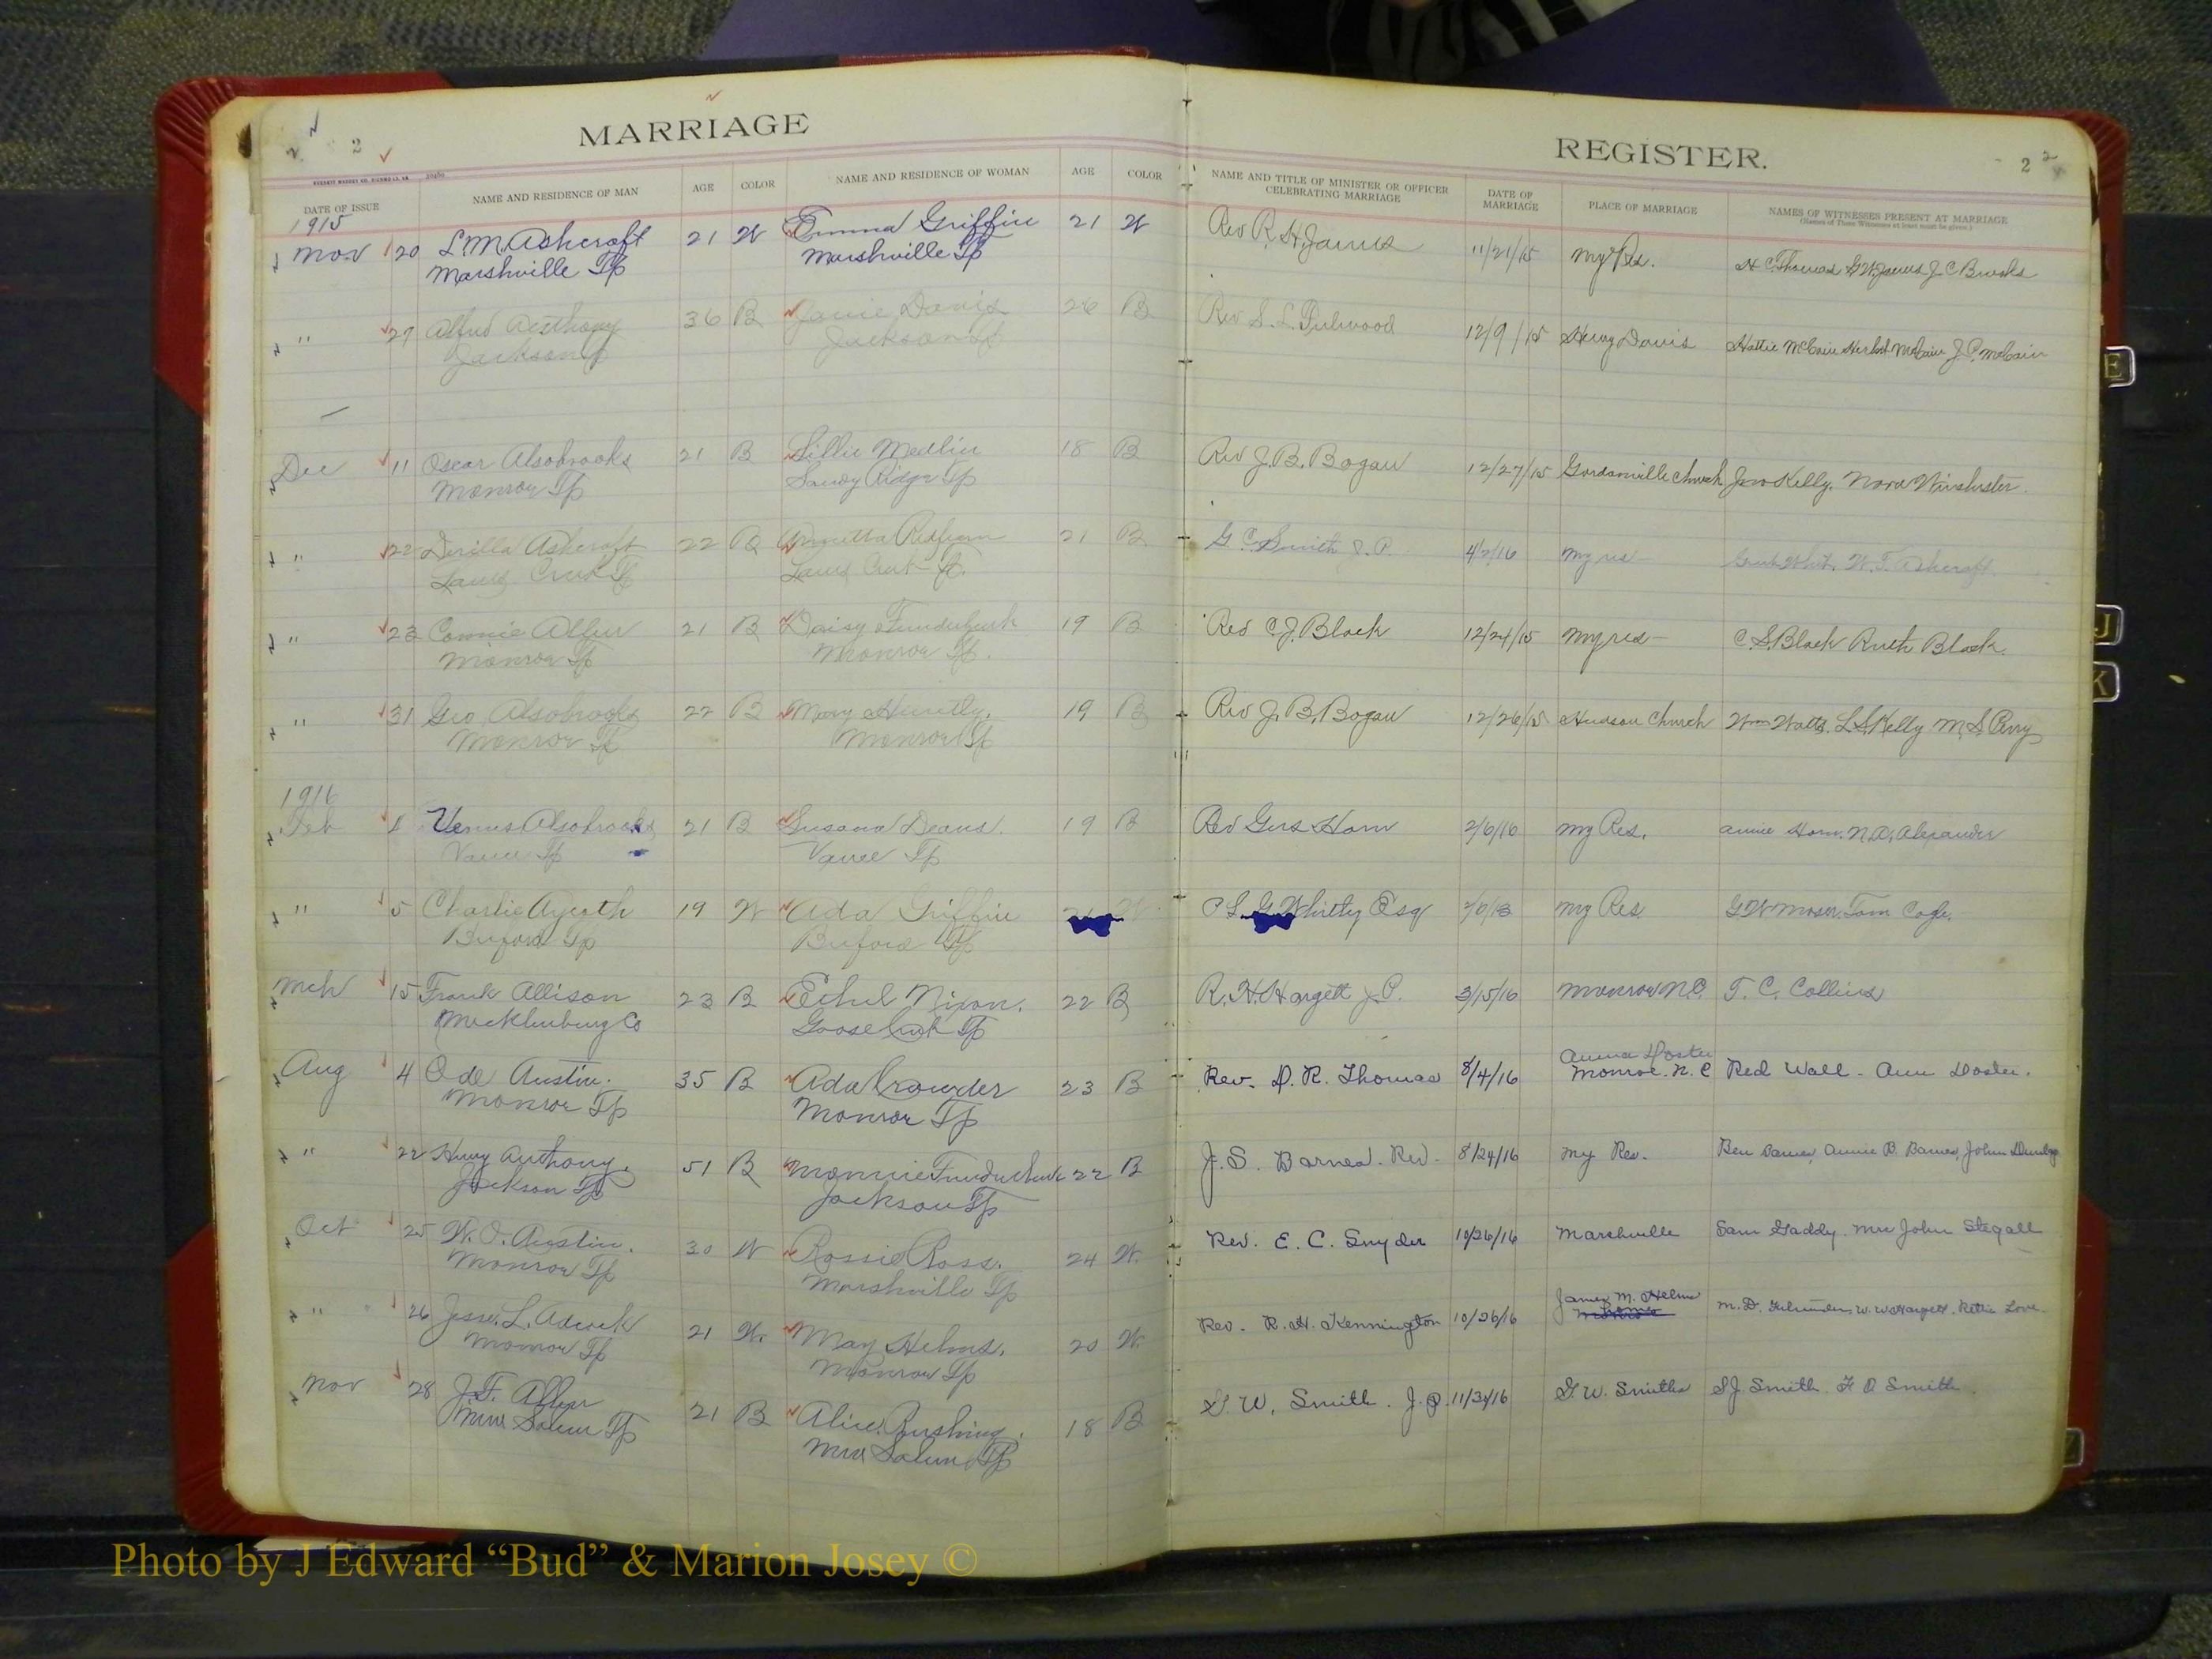 2
MARRIAGE
DATE OF ISSUE
NAME AND RESIDENCE OF MAN
AGE
COLOR
NAME AND RESIDENCE OF WOMAN
AGE
COLOR
1915
Nov 20 L.M. Ashcraft 21 W Emma Griffin 21 W
Marshville Tp Marshville Tp
" 27 Alfred Anthony 36 B Janie Davis 26 B
Jackson Tp Jackson Tp
Dec 11 Oscar Alsobrooks 21 B Lillie Medlin 18 B
Monroe Tp Sandy Ridge Tp
" 22 Ashcraft 22 B Redfearn 21 B
Lanes Creek Tp Lanes Creek Tp
" 23 Connie Allen 21 B Daisy Funderburk 19 B
Monroe Tp Monroe Tp.
" 31 Geo. Alsobrooks 22 B Mary Huntly. 19 B
Monroe Tp Monroe Tp
1916
Feb Venus Alsobrooks 21 B Susana Deans. 19 B
Vance Tp Vance Tp
" 5 Charlie Aycoth 19 W Ada Griffin W
Buford Tp Buford Tp
Mch 15 Frank Allison 23 B Ethel Nixon. 22 B
Mecklenburg Co Goose Creek Tp
Aug 4 Ode Austin. 35 B Ada Crowder 23 B
Monroe Tp Monroe Tp
" 22 Henry Anthony. 51 B Mannie Funderburk 22 B
Jackson Tp Jackson Tp
Oct 25 W.O. Austin. 30 W Rossie Ross. 24 W.
Monroe Tp Marshville Tp
" 26 Jesse L. Adcock 21 W. May Helms. 20 W.
Monroe Tp Monroe Tp
Nov 28 J.F. Allen 21 B Alice Rushing. 18 B
New Salem Tp New Salem Tp
REGISTER.
2
NAME AND TITLE OF MINISTER OR OFFICER
CELEBRATING MARRIAGE
DATE OF
MARRIAGE
PLACE OF MARRIAGE
NAMES OF WITNESSES PRESENT AT MARRIAGE
(Names of Three Witnesses at least must be given.)
Rev R.H. James 11/21/15 My Res. H C. Thomas G.W. James J. C Brooks
Rev S. L. Fulwood 12/9/15 Henry Davis Hattie McCain Herbert McCain J.P. McCain
Rev J.B. Bogan 12/27/15 Church Jno Kelly. Nora Winchester.
G C Smith J. P. 4/2/16 My res W. T. Ashcraft.
Rev C.J. Black 12/24/15 My res C.S. Black Ruth Black.
Rev J. B. Bogan 12/26/15 Hudson Church Wm Watts. L.S. Kelly M.S. Perry
Rev Gus Horn 2/6/16 My Res. Annie Horn. N.A. Alexander
Esq My Res G W Moser. Tom
R. H. Hargett J.P. 3/15/16 Monroe N.C. T. C. Collins
Anna Doster
Rev. D. R. Thomas 8/4/16 Monroe. N. C Red Wall - Ann Doster.
J. S. Barnes. Rev. 8/24/16 My Res. Ben Annie B. Barnes, John
Rev. E. C. Snyder 10/26/16 Marshville Sam Gaddy. Mrs John Stegall
James M. Helms
Rev. R. H. Kennington 10/26/16 Monroe M. D. W. W. Hargett. Love.
G. W. Smith. J.P. 11/30/16 G W. Smiths S.J. Smith. Smith.
Photo by J Edward “Bud” & Marion Josey ©